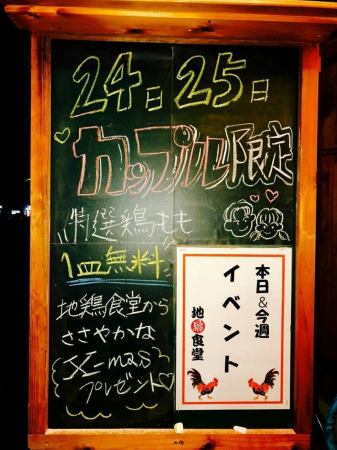 24日 25日
カップル限定
特選鶏もも
1皿無料
地鶏食堂から
ささやかな
X-mas
プレゼント
本日&今週
イベント
地鶏食堂